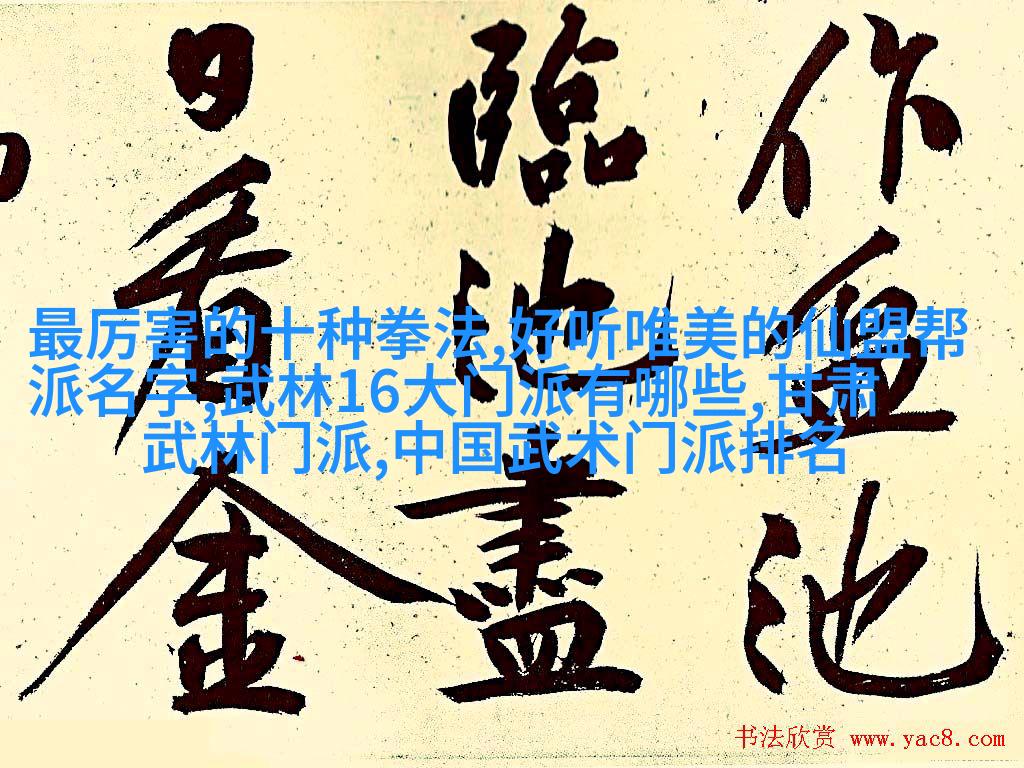 作池
臨池盡
日看金
最厉害的十种拳法,好听唯美的仙盟帮
派名字,武林16大门派有哪些,甘肃
武林门派,中国武术门派排名
书法欣赏 www.yac8.com